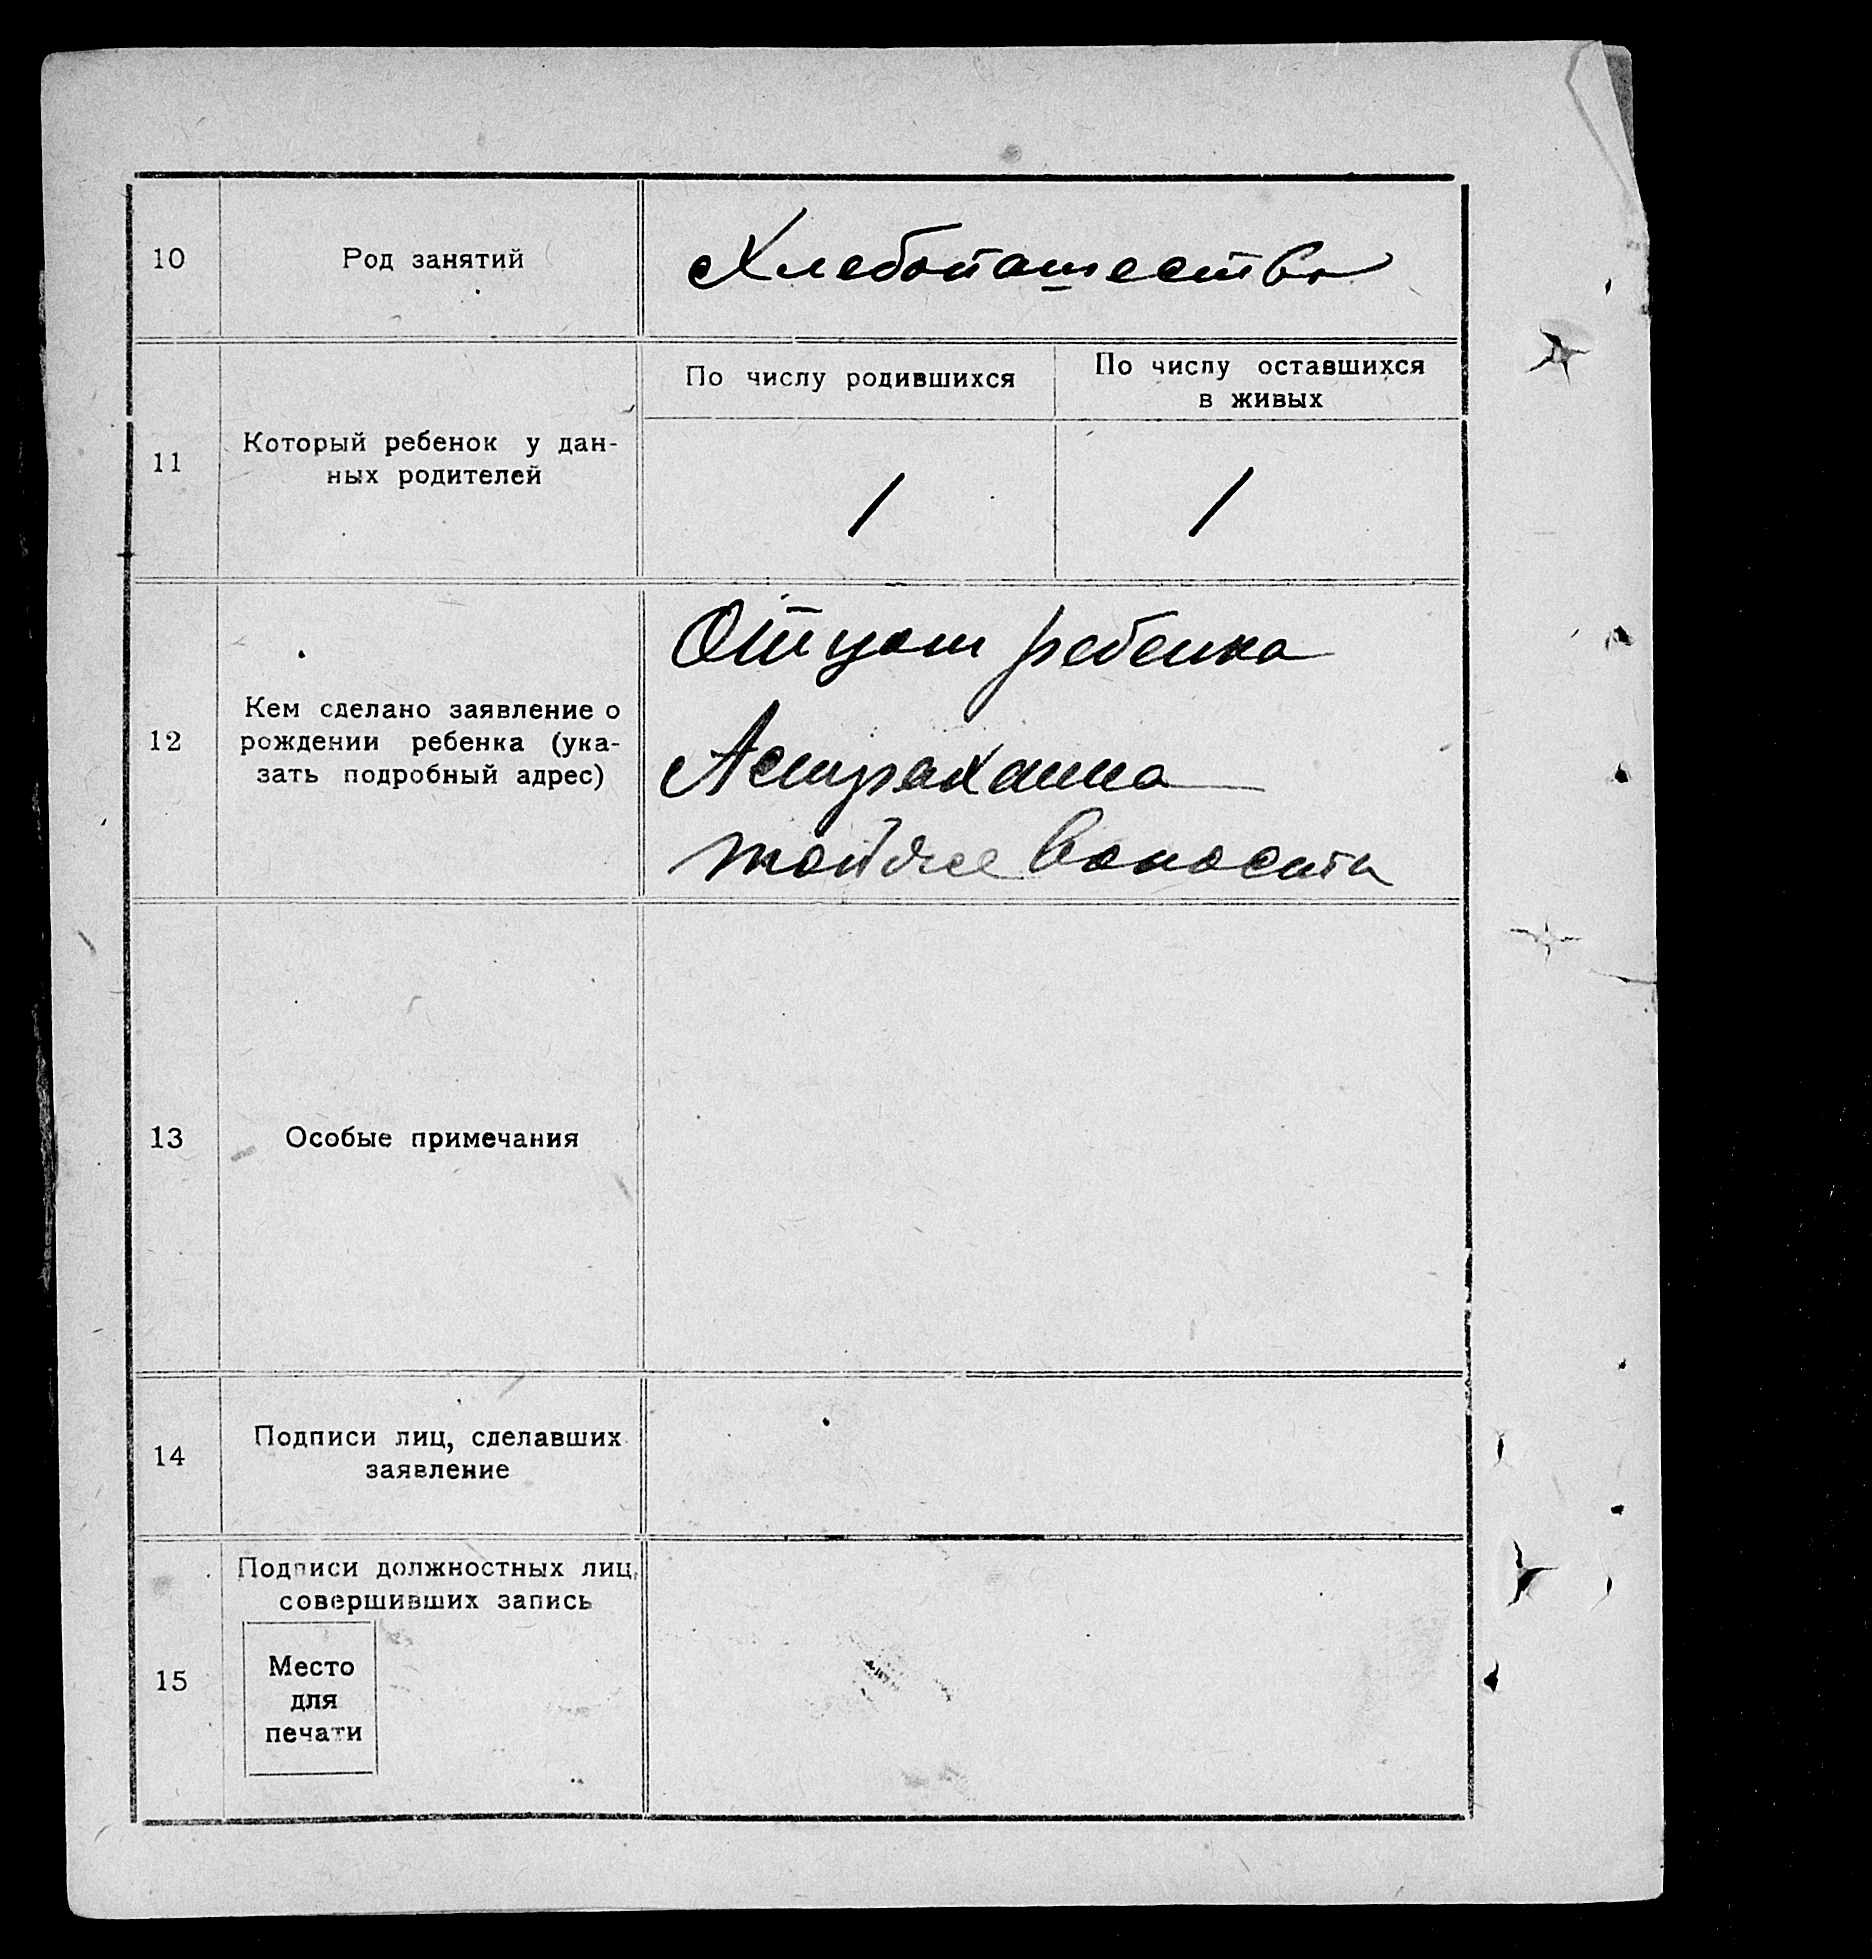 10
Род занятий
Хлебопашество
11
Который ребенок у дан-
ных родителей
По числу родившихся
По числу оставшихся
в живых
1
1
12
Кем сделано заявление о
рождении ребенка (ука-
зать подробный адрес)
Отцом ребенка
Астраханка
той же
13
Особые примечания
14
Подписи лиц, сделавших
заявление
15
Подписи должностных лиц,
совершивших запись
Место
для
печати